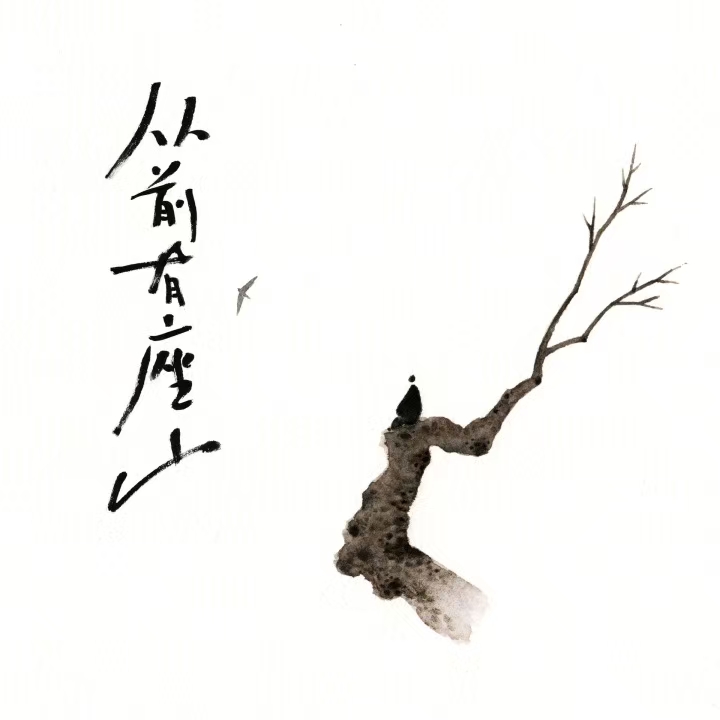 从前有座山